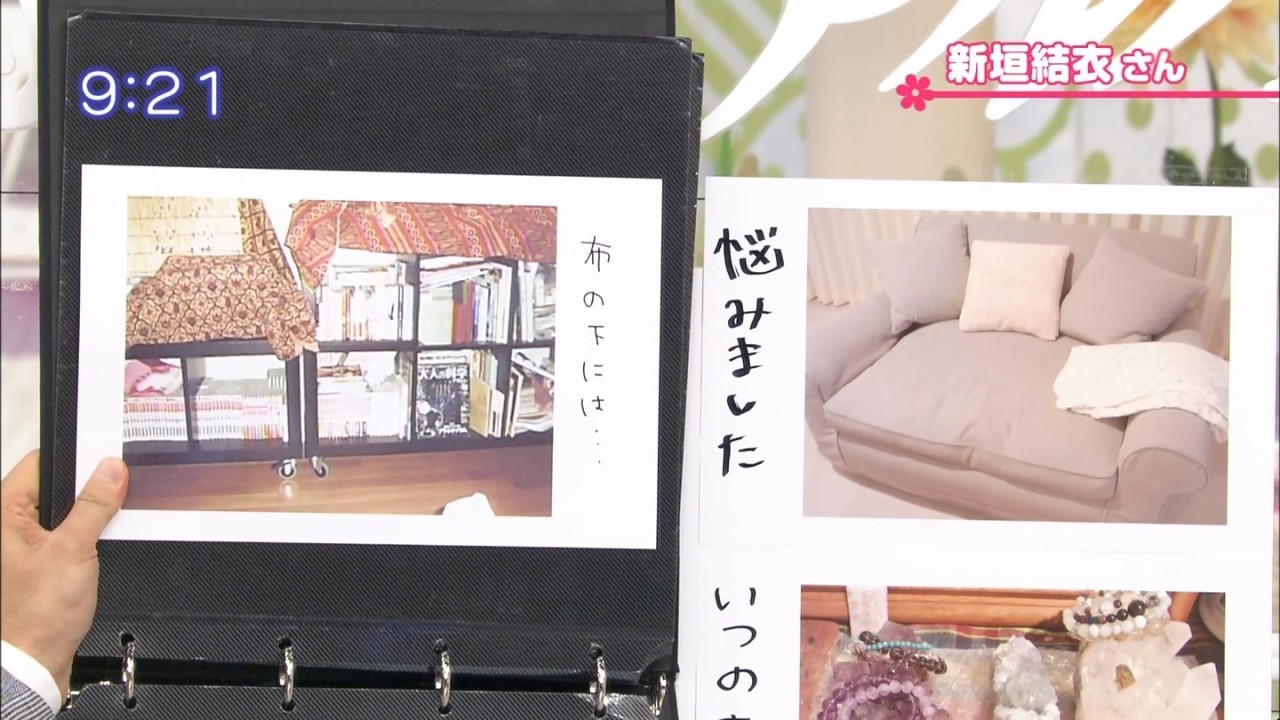 9:21
新垣結衣さん
布の下には…
大人の科学
悩みました
いつの